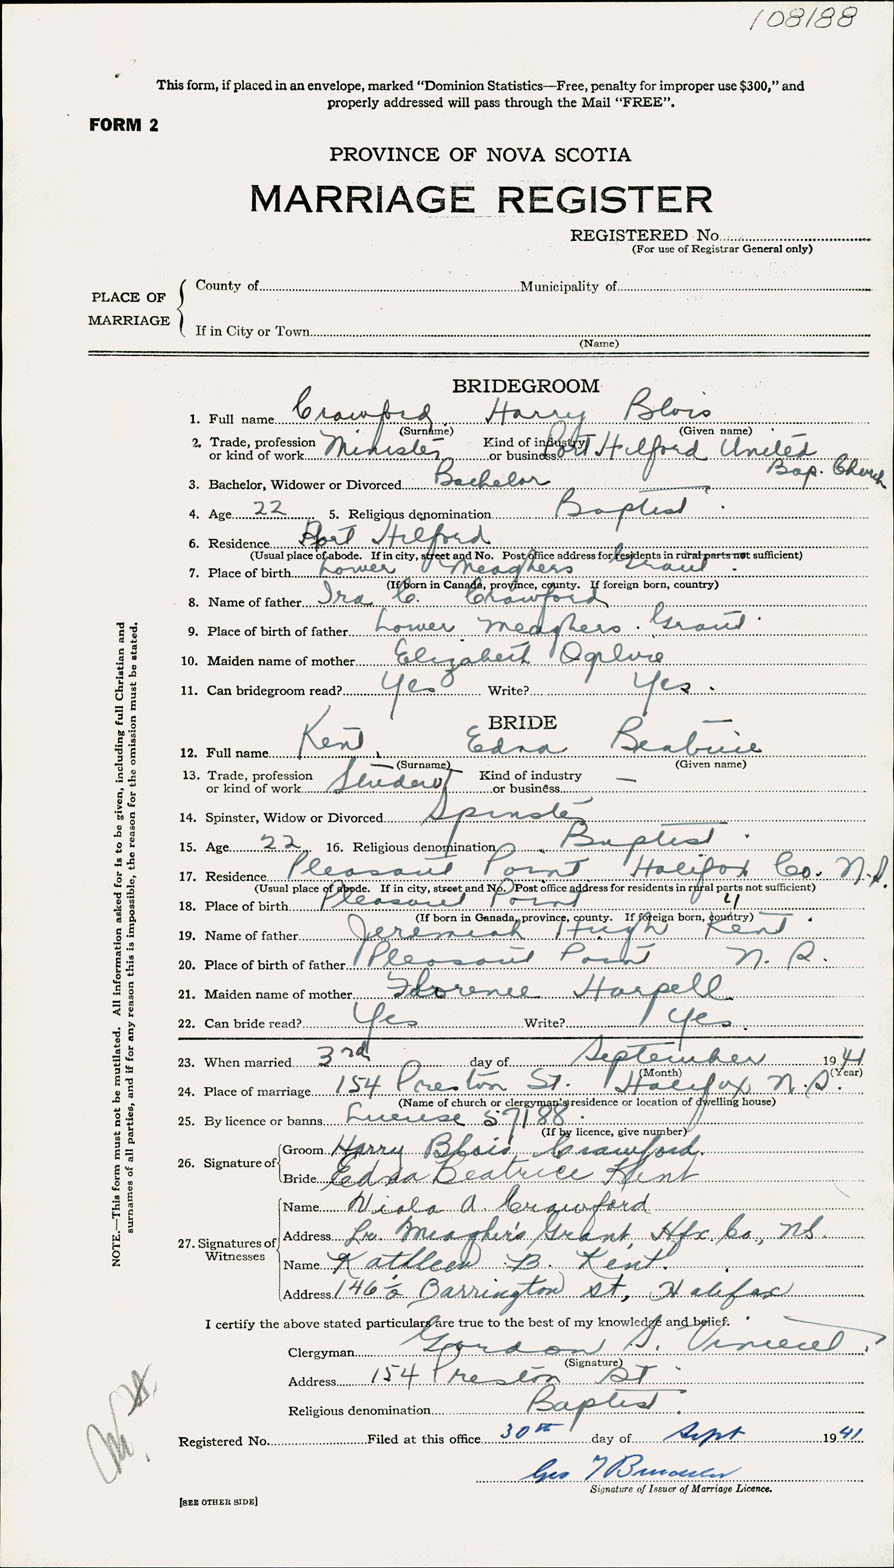 108188
This form, if placed in an envelope, marked "Dominion Statistics—Free, penalty for improper use $300," and
properly addressed will pass through the Mail "FREE".
FORM 2
PROVINCE OF NOVA SCOTIA
MARRIAGE REGISTER
REGISTERED No.
(For use of Registrar General only)
PLACE OF MARRIAGE
County of Municipality of
If in City or Town
(Name)
BRIDEGROOM
1. Full name Crawford Harry Blois
(Surname) (Given name)
2. Trade, profession or kind of work Minister Kind of industry or business Port Hilford United Bap. Church
3. Bachelor, Widower or Divorced Bachelor
4. Age 22 5. Religious denomination Baptist
6. Residence Port Hilford
(Usual place of abode. If in city, street and No. Post office address for residents in rural parts not sufficient)
7. Place of birth Lower Meaghers Grant
(If born in Canada, province, county. If foreign born, country)
8. Name of father Ira C. Crawford
9. Place of birth of father Lower Meaghers Grant
10. Maiden name of mother Elizabeth Ogilvie
11. Can bridegroom read? Yes Write? Yes.
BRIDE
12. Full name Kent, Edna Beatrice
(Surname) (Given name)
13. Trade, profession or kind of work Student Kind of industry or business —
14. Spinster, Widow or Divorced Spinster
15. Age 22 16. Religious denomination Baptist
17. Residence Pleasant Point Halifax Co. N.S.
(Usual place of abode. If in city, street and No. Post office address for residents in rural parts not sufficient)
18. Place of birth Pleasant Point "
(If born in Canada, province, county. If foreign born, country)
19. Name of father Jeremiah Hugh Kent
20. Place of birth of father Pleasant Point N.S.
21. Maiden name of mother Florence Harpell
22. Can bride read? Yes Write? Yes.
23. When married 3rd day of September 1941
(Month) (Year)
24. Place of marriage 154 Preston St. Halifax N.S.
(Name of church or clergyman's residence or location of dwelling house)
25. By licence or banns License 57188
(If by licence, give number)
26. Signature of Groom Harry Blois Crawford.
Bride Edna Beatrice Kent
27. Signatures of Witnesses
Name Viola A. Crawford
Address Lr. Meagher's Grant, Hfx. Co., N.S.
Name Kathleen B. Kent.
Address 146½ Barrington St, Halifax
I certify the above stated particulars are true to the best of my knowledge and belief.
Clergyman Gordon S. Vincent
(Signature)
Address 154 Preston St
Religious denomination Baptist
Registered No. Filed at this office 30th day of Sept 1941
Geo
Signature of Issuer of Marriage Licence.
[SEE OTHER SIDE]
NOTE.—This form must not be mutilated. All information asked for is to be given, including full Christian and
surnames of all parties, and if for any reason this is impossible, the reason for the omission must be stated.